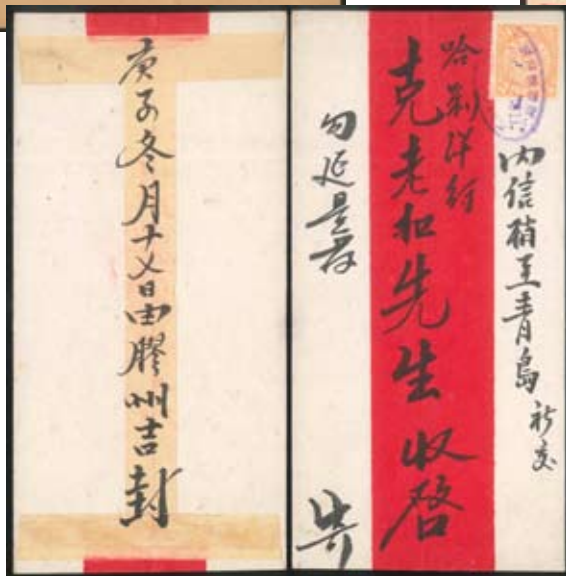 内信稍至青島 祈交
哈剌洋行
克老和先生收啓
勿延是荷
庚子冬月十〤日由膠州吉封